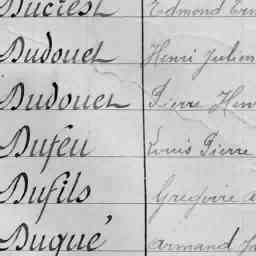 Ducrest Edmond Ern
Dudouet Henri Julien
Dudouet Pierre Hen
Dufeu Louis Pierre
Dufils Gregoire A
Dugué Armand Ja